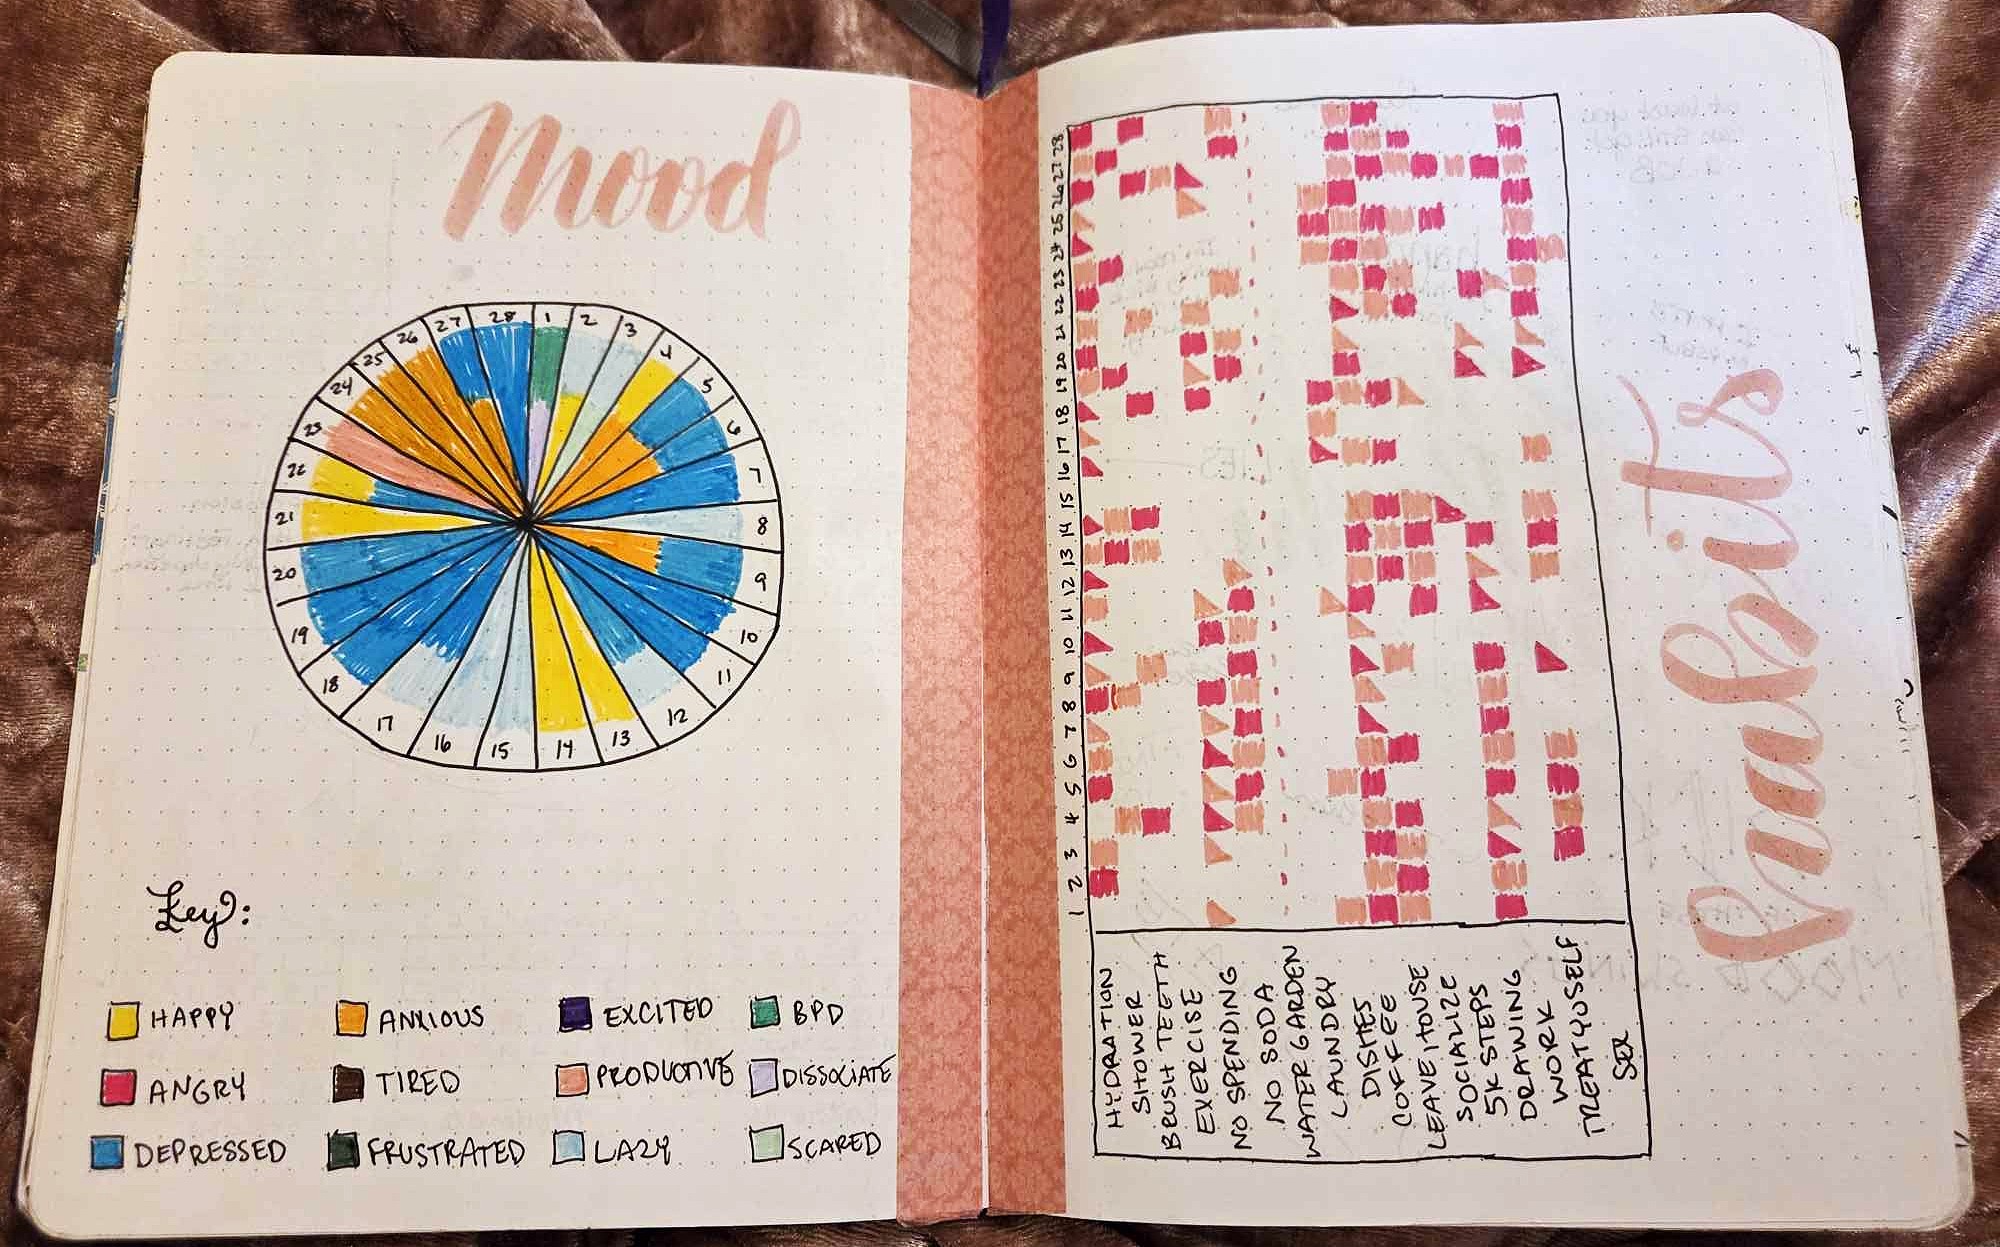 Mood
1
2
3
4
5
6
7
8
9
10
11
12
13
14
15
16
17
18
19
20
21
22
23
24
25
26
27
28
Key:
HAPPY
ANXIOUS
EXCITED
BPD
ANGRY
TIRED
PRODUCTIVE
DISSOCIATE
DEPRESSED
FRUSTRATED
LAZY
SCARED
Habits
1 2 3 4 5 6 7 8 9 10 11 12 13 14 15 16 17 18 19 20 21 22 23 24 25 26 27 28
HYDRATION
SHOWER
BRUSH TEETH
EXERCISE
NO SPENDING
NO SODA
WATER GARDEN
LAUNDRY
DISHES
COFFEE
LEAVE HOUSE
SOCIALIZE
5K STEPS
DRAWING
WORK
TREATYOSELF
SEX